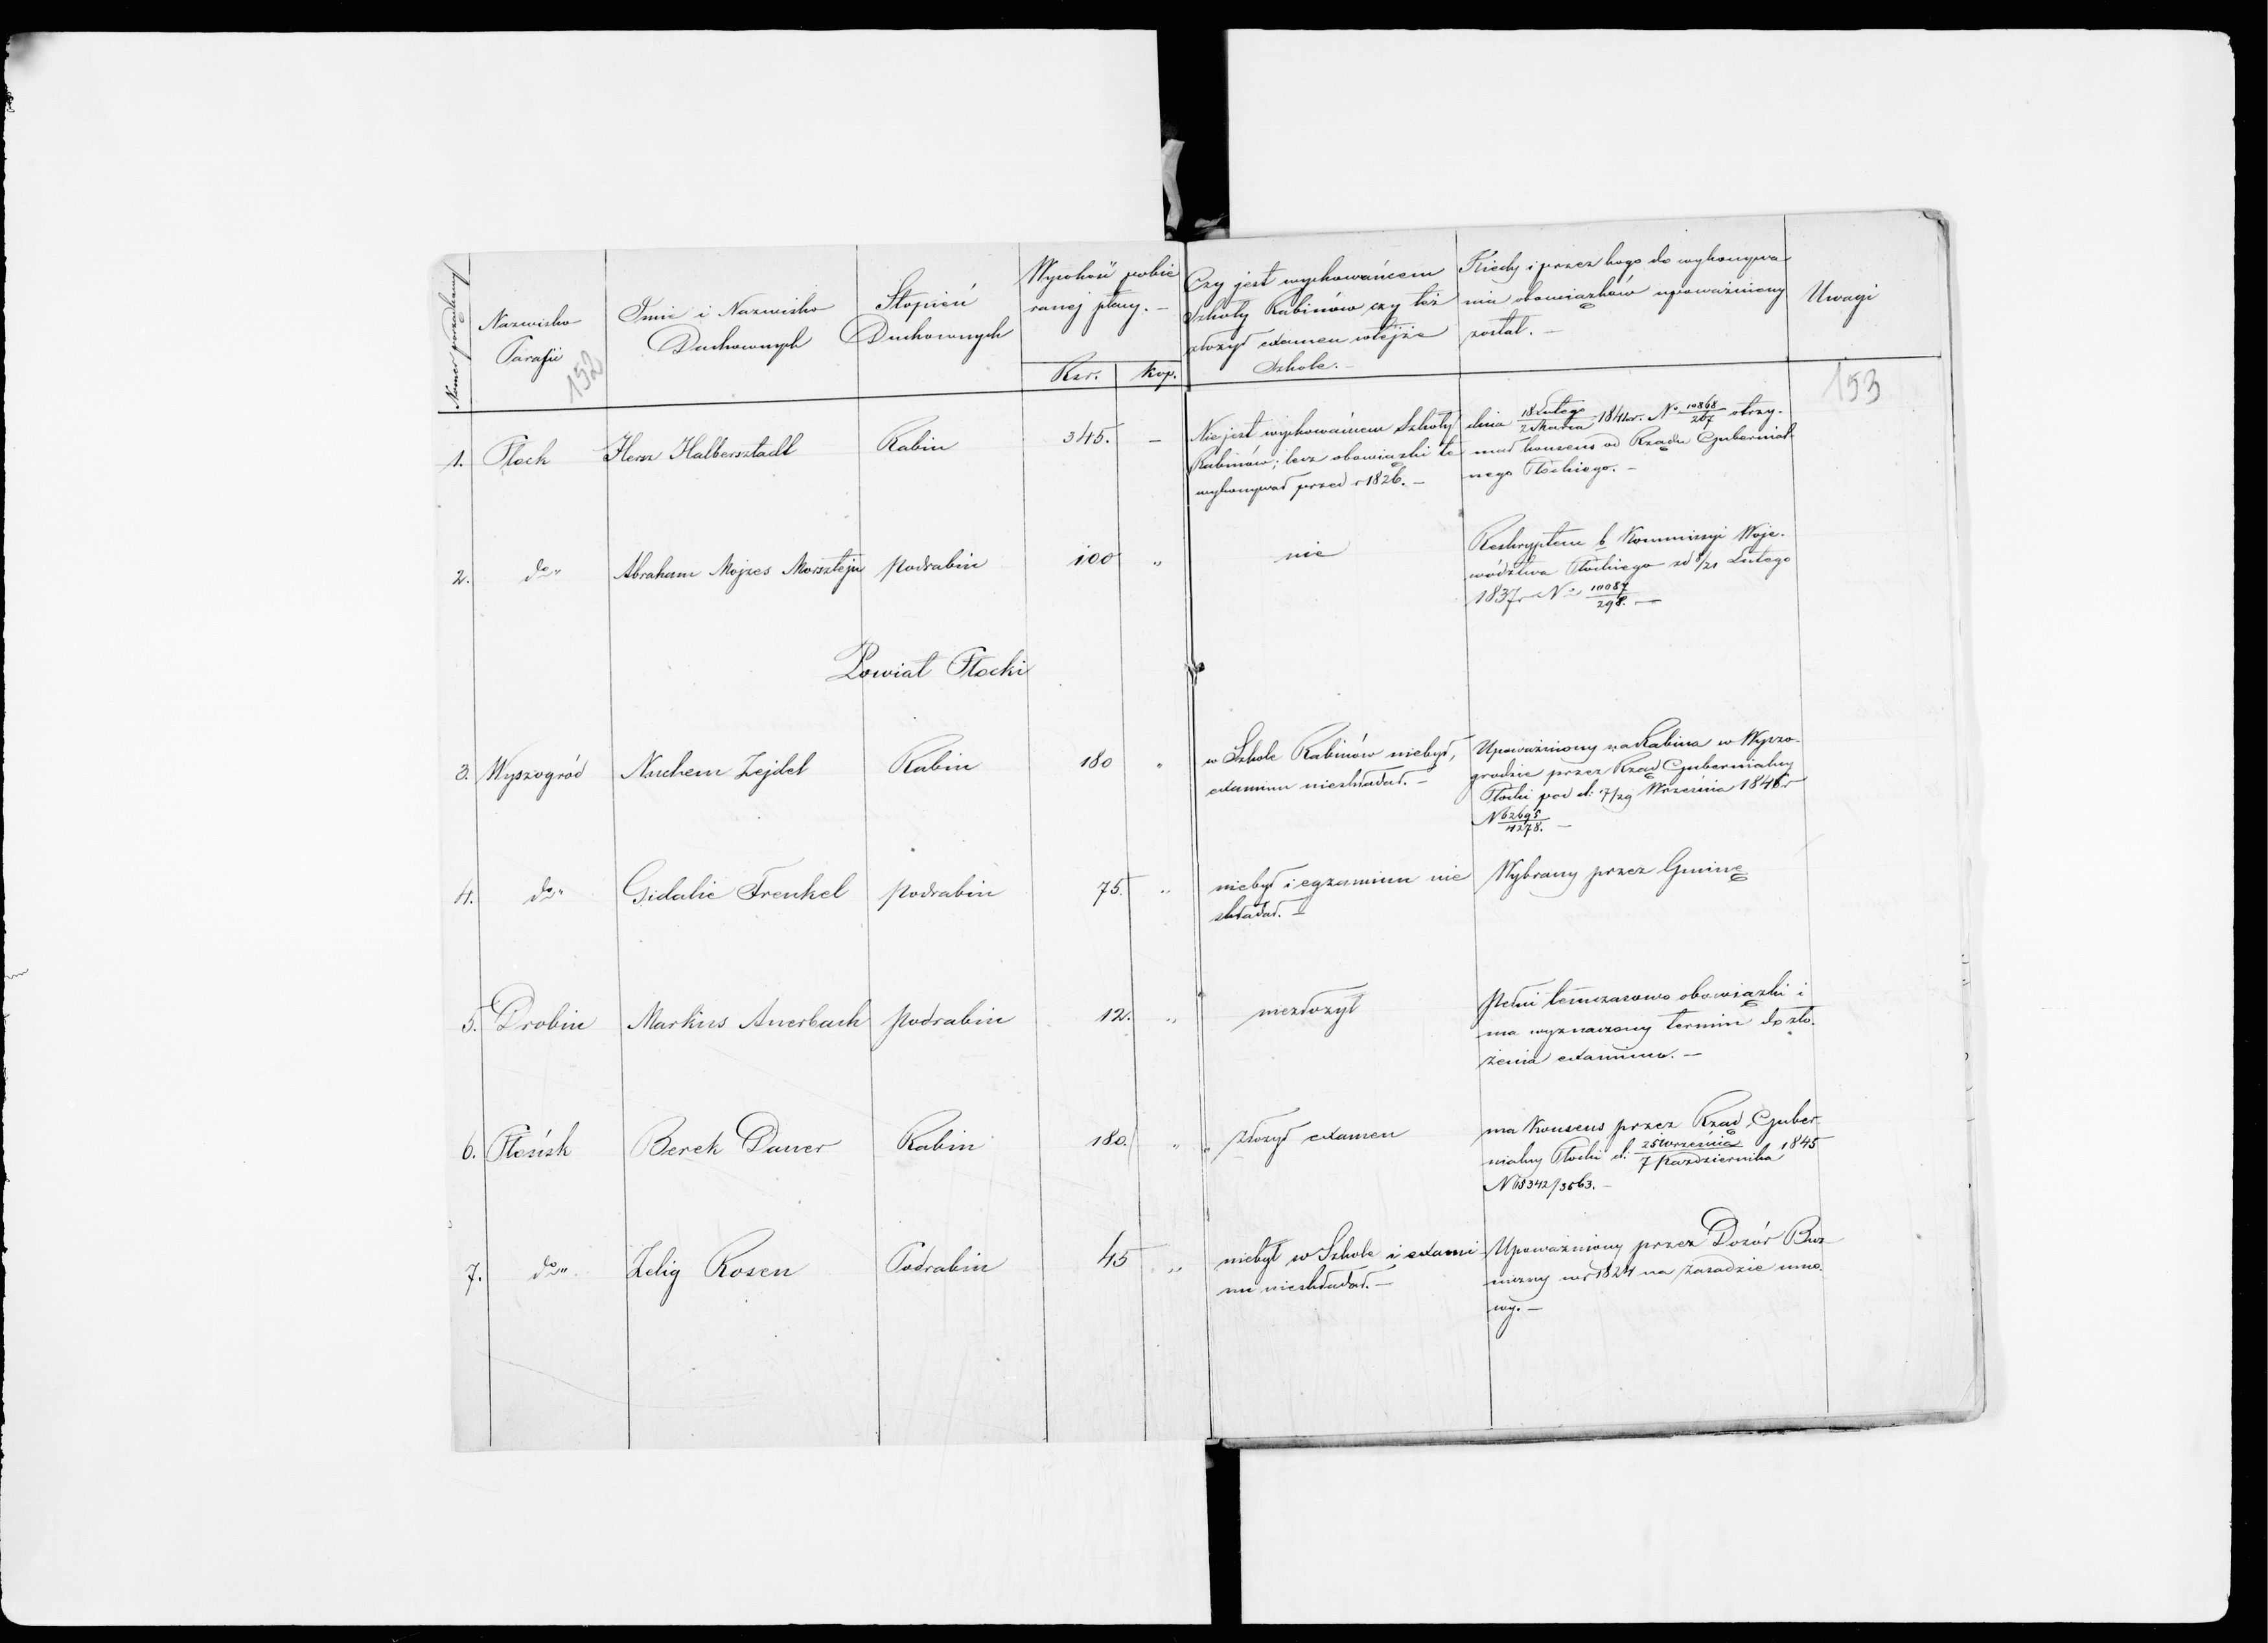 Numer porządkowy
Nazwisko
Parafii
152
Imie i Nazwisko
Duchownych
Stopień
Duchownych
Wysokość pobie
ranej płacy. –
Rsr. kop.
Czy jest wychowańcem
Szkoły Rabinów czy też
złożył examen w tejże
Szkole. –
Kiedy i przez kogo do wykonywa
nia obowiązków upoważniony
został. –
Uwagi
153
1. Płock Hersz Halbersztadt Rabin 345. –
Nie jest wychowańcem Szkoły
Rabinów; lecz obowiązki te
wykonywał przed r 1826. –
dnia 18 Lutego/2 Marca 1841r. No 10868/267 otrzy-
mał konsens od Rządu Gubernial-
nego Płockiego. –
2. do„ Abraham Mojzes Morsztejn Podrabin 100 „
nie
Reskryptem b. Kommissyi Woje-
wództwa Płockiego z d 9/21 Lutego
1837r No 10087/298. –
Powiat Płocki
3. Wyszogród Nuchem Zejdel Rabin 180 „
w Szkole Rabinów niebył,
examinu nieskładał. –
Upoważniony na Rabina w Wyszo-
grodzie przez Rząd Gubernialny
Płocki pod d: 17/29 Września 1846r
N 62695/4278. –
4. do„ Gidalie Frenkel Podrabin 75. „
niebył i egzaminu nie
składał. –
Wybrany przez Gminę
5. Drobin Markus Auerbach Podrabin 12. „
niezłożył
Pełni tymczasowo obowiązki i
ma wyznaczony termin do zło-
żenia examinu. –
6. Płońsk Berek Dauer Rabin 180. „
„ złożył examen
ma Konsens przez Rząd Guber-
nialny Płocki d: 25 Września/7 Października 1845
N 68342/3563. –
7. do„ Zelig Rosen Podrabin 45 „
niebył w Szkole i exami-
nu nieskładał. –
Upoważniony przez Dozór Boż
niczny w r 1824 na zasadzie umo-
wy. –